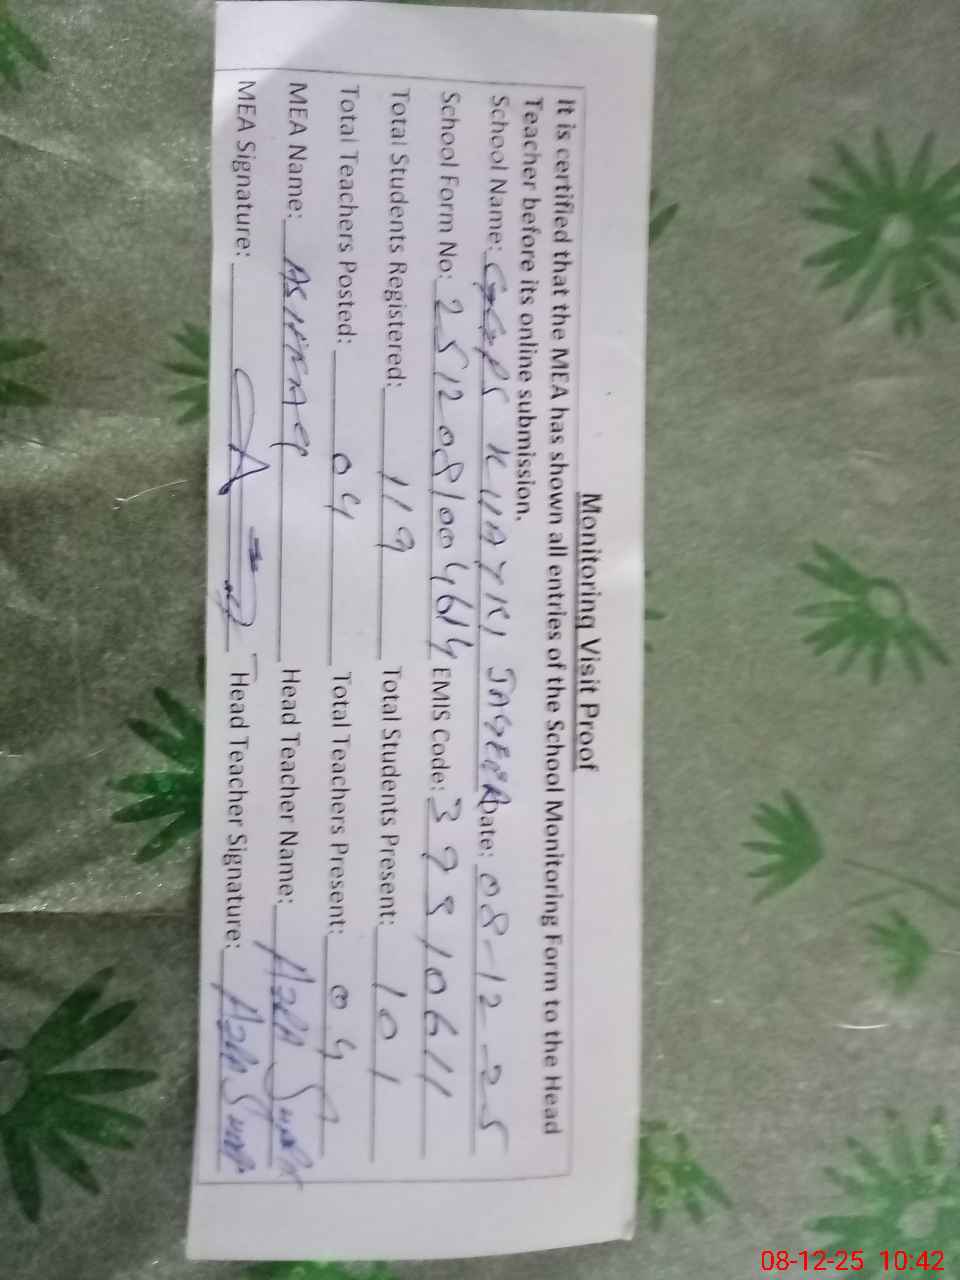 Monitoring Visit Proof
It is certified that the MEA has shown all entries of the School Monitoring Form to the Head
Teacher before its online submission.
School Name: GGPS KHAYKI JAGEER Date: 08-12-25
School Form No: 2512081004614 EMIS Code: 39510611
Total Students Registered: 119 Total Students Present: 101
Total Teachers Posted: 04 Total Teachers Present: 04
MEA Name: Head Teacher Name:
MEA Signature: Head Teacher Signature:
08-12-25 10:42